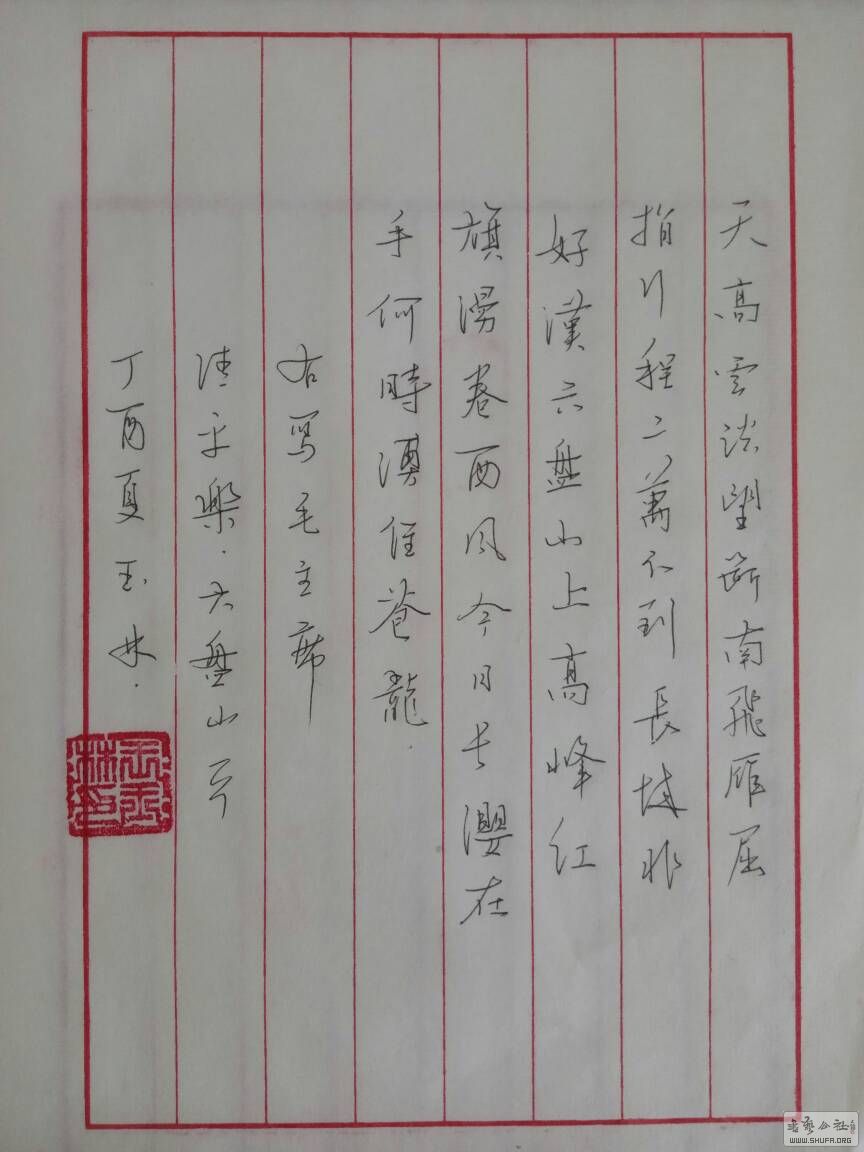 天高雲淡望斷南飛雁屈
指行程二萬不到長城非
好漢六盤山上高峰紅
旗漫卷西風今日長纓在
手何時縛住蒼龍.
右寫毛主席
清平樂·六盤山
丁酉夏玉林.
王玉林印
書藝公社
WWW.SHUFA.ORG